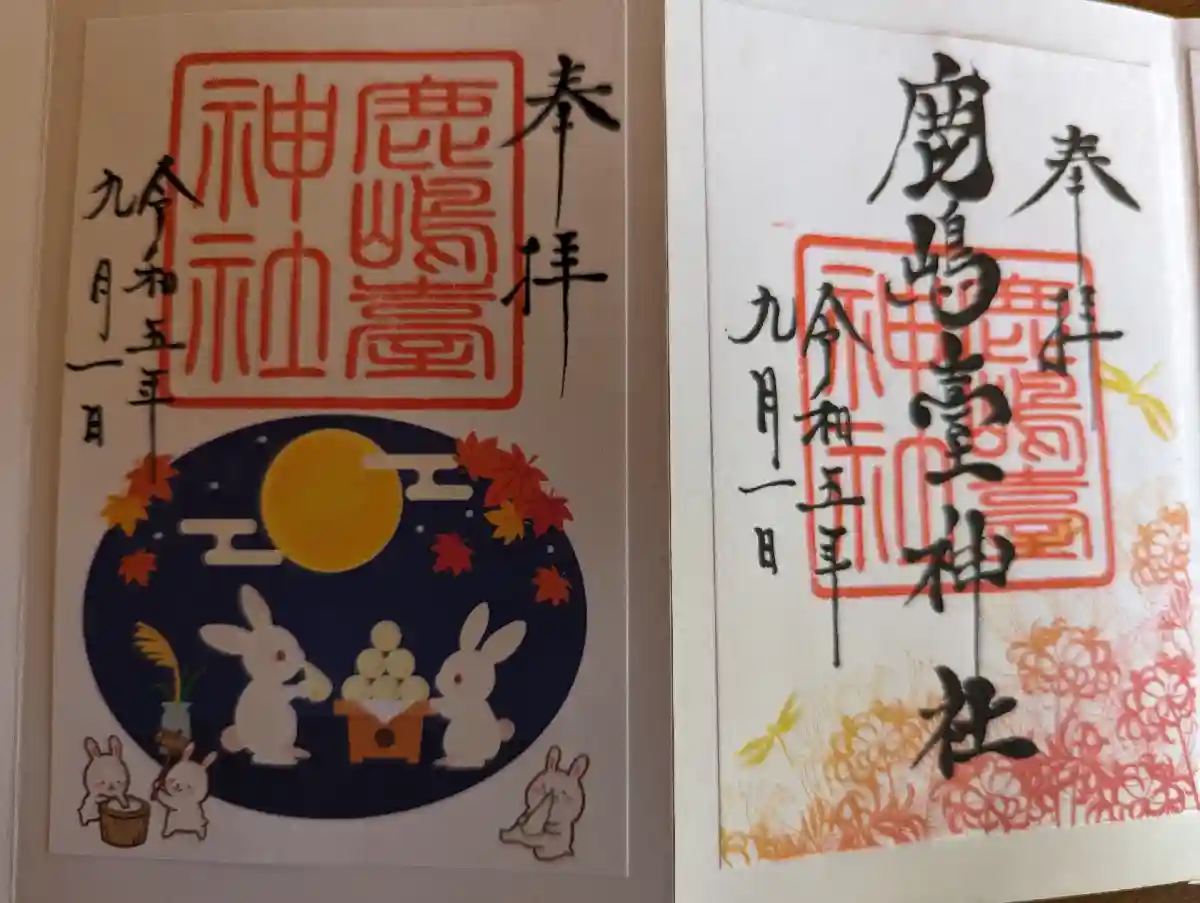 奉拝
鹿嶋臺
神社
令和五年
九月一日
奉拝
鹿嶋臺神社
鹿嶋臺
神社
令和五年
九月一日